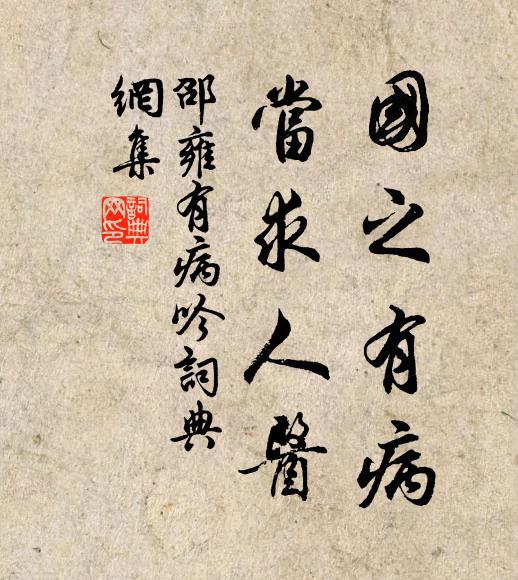 國之有病
當求人醫
邵雍有病吟詞典
網集
詞典
网印